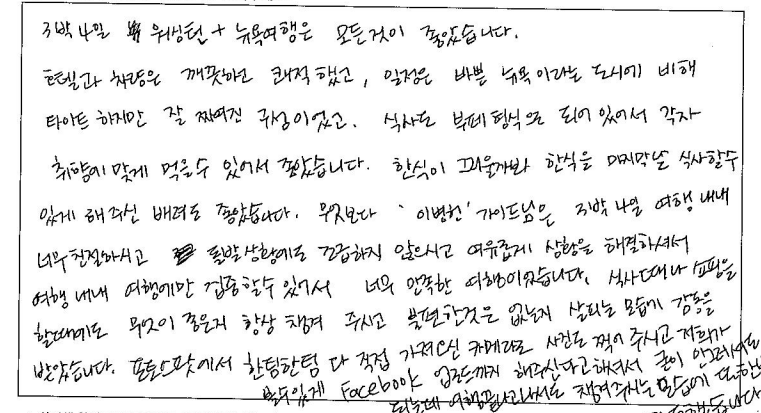 3박4일 워싱턴 + 뉴욕여행은 모든것이 좋았습니다.
호텔과 차량은 깨끗하고 쾌적했고, 일정은 바쁜 뉴욕이라는 도시에 비해
타이트 하지만 잘 짜여진 구성이었고. 식사도 부페형식으로 되어 있어서 각자
취향에 맞게 먹을수 있어서 좋았습니다. 한식이 그리울까봐 한식을 마지막날 식사할수
있게 해주신 배려도 좋았습니다. 무엇보다 '이병헌' 가이드님은 3박4일 여행 내내
너무 친절하시고 돌발상황에도 긴급하지 않으시고 여유롭게 상황을 해결하셔서
여행 내내 여행에만 집중할수 있어서 너무 만족한 여행이었습니다. 식사때나 쇼핑을
할때에도 무엇이 좋은지 항상 챙겨 주시고 불편한것은 없는지 살피는 모습에 감동을
받았습니다. 포토스팟에서 한팀한팀 다 직접 가져오신 카메라로 사진도 찍어 주시고 저희가
볼수있게 Facebook 업로드까지 해주신다고하셔서 굳이 안그러셔도
되는데 여행끝나고나서도 챙겨주시는 모습에 또한번